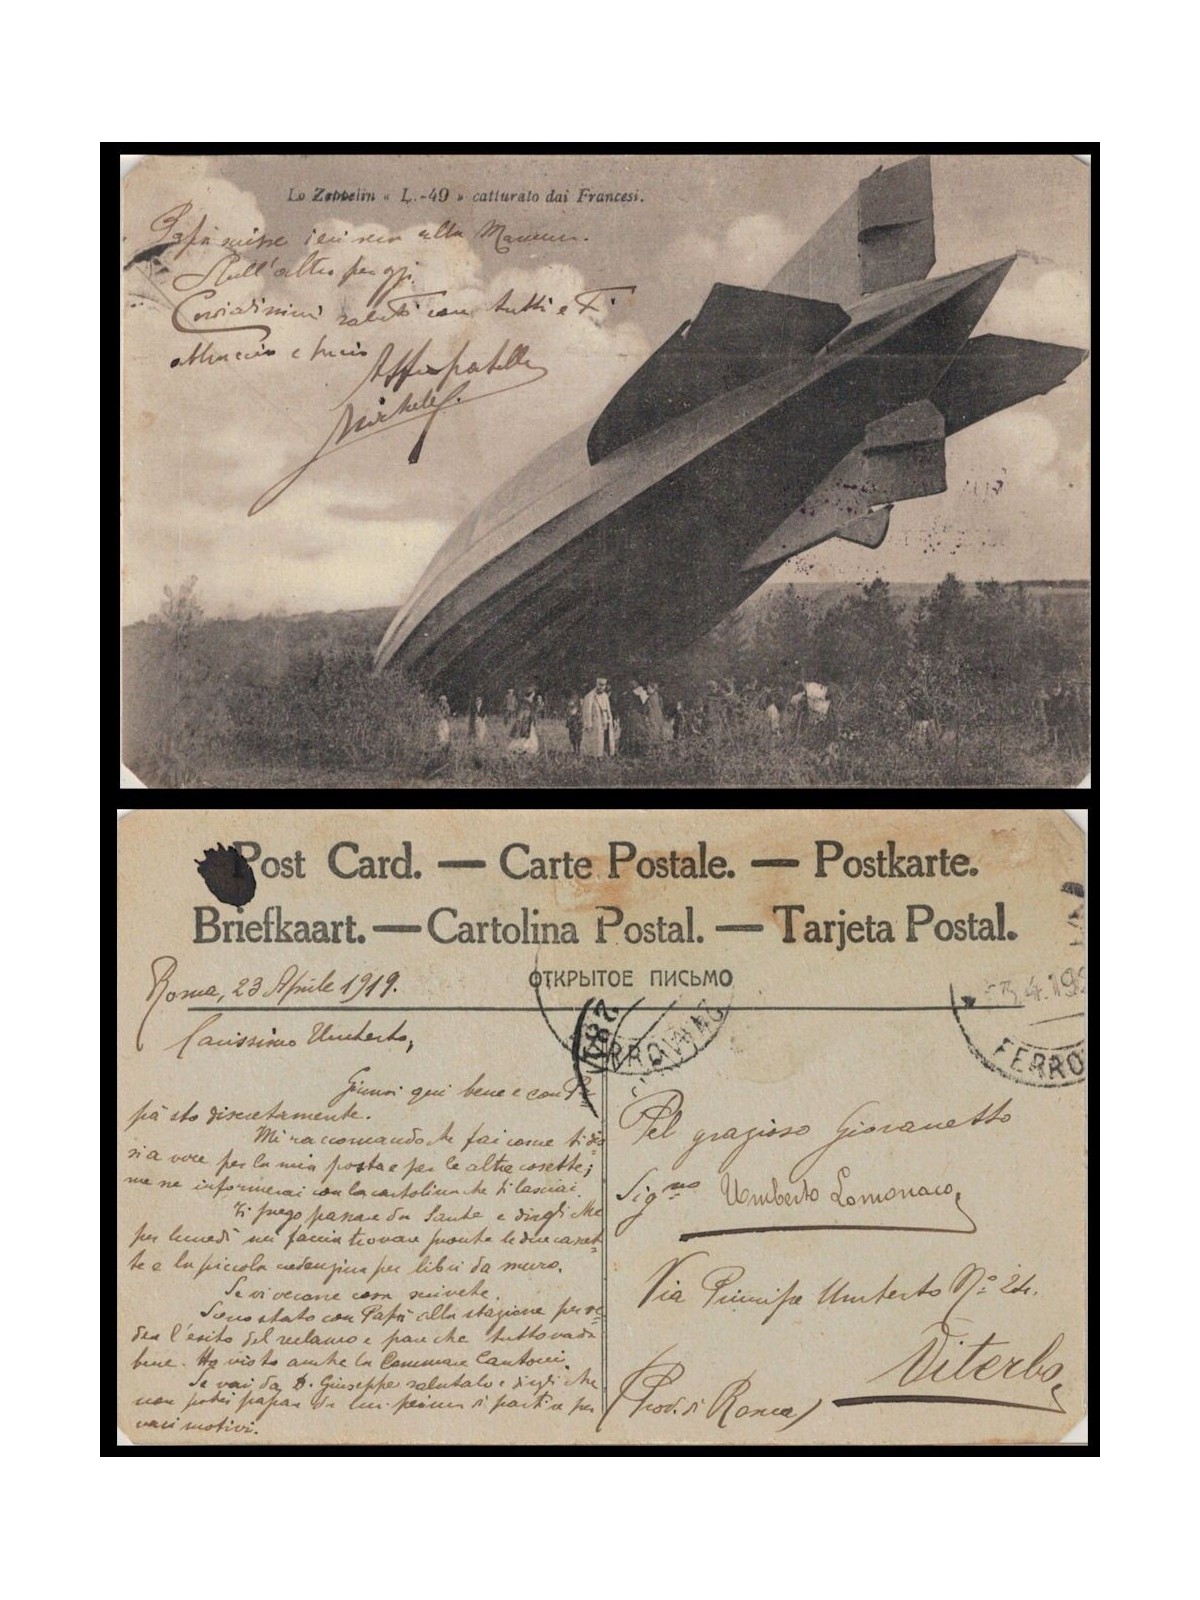 Lo Zeppelin « L.-49 » catturato dai Francesi.
Papà scisse ieri sera alla Mamma.
Null'altro per oggi.
Cordialissimi saluti con tutti e Ti
abbraccio e bacio
Aff. fratello
Michele
Post Card. — Carte Postale. — Postkarte.
Briefkaart. — Cartolina Postal. — Tarjeta Postal.
ОТКРЫТОЕ ПИСЬМО
Roma, 23 Aprile 1919.
Carissimo Umberto,
Giunsi qui bene e con Pa-
pà sto discretamente.
Mi raccomando che fai come ti dis-
si a voce per la mia posta e per le altre cosette;
me ne informerai con la cartolina che ti lasciai.
Ti prego passare da Sante e dirgli che
per lunedì mi faccia trovare pronte le due casset-
te e la piccola credenzina per libri da muro.
Se vi vecone cosa scrivete.
Sono stato con Papà alla stazione per ve-
der l'esito del reclamo e pare che tutto vada
bene. Ho visto anche la Commare Cantucci.
Se vai da D. Giuseppe salutalo e digli che
non potei passar da lui prima di partire per
vari motivi.
Pel grazioso Giovanetto
Sig.no Umberto Lomonaco,
Via Principe Umberto N.° 24.
Viterbo,
(Prov. di Roma)
FERRO